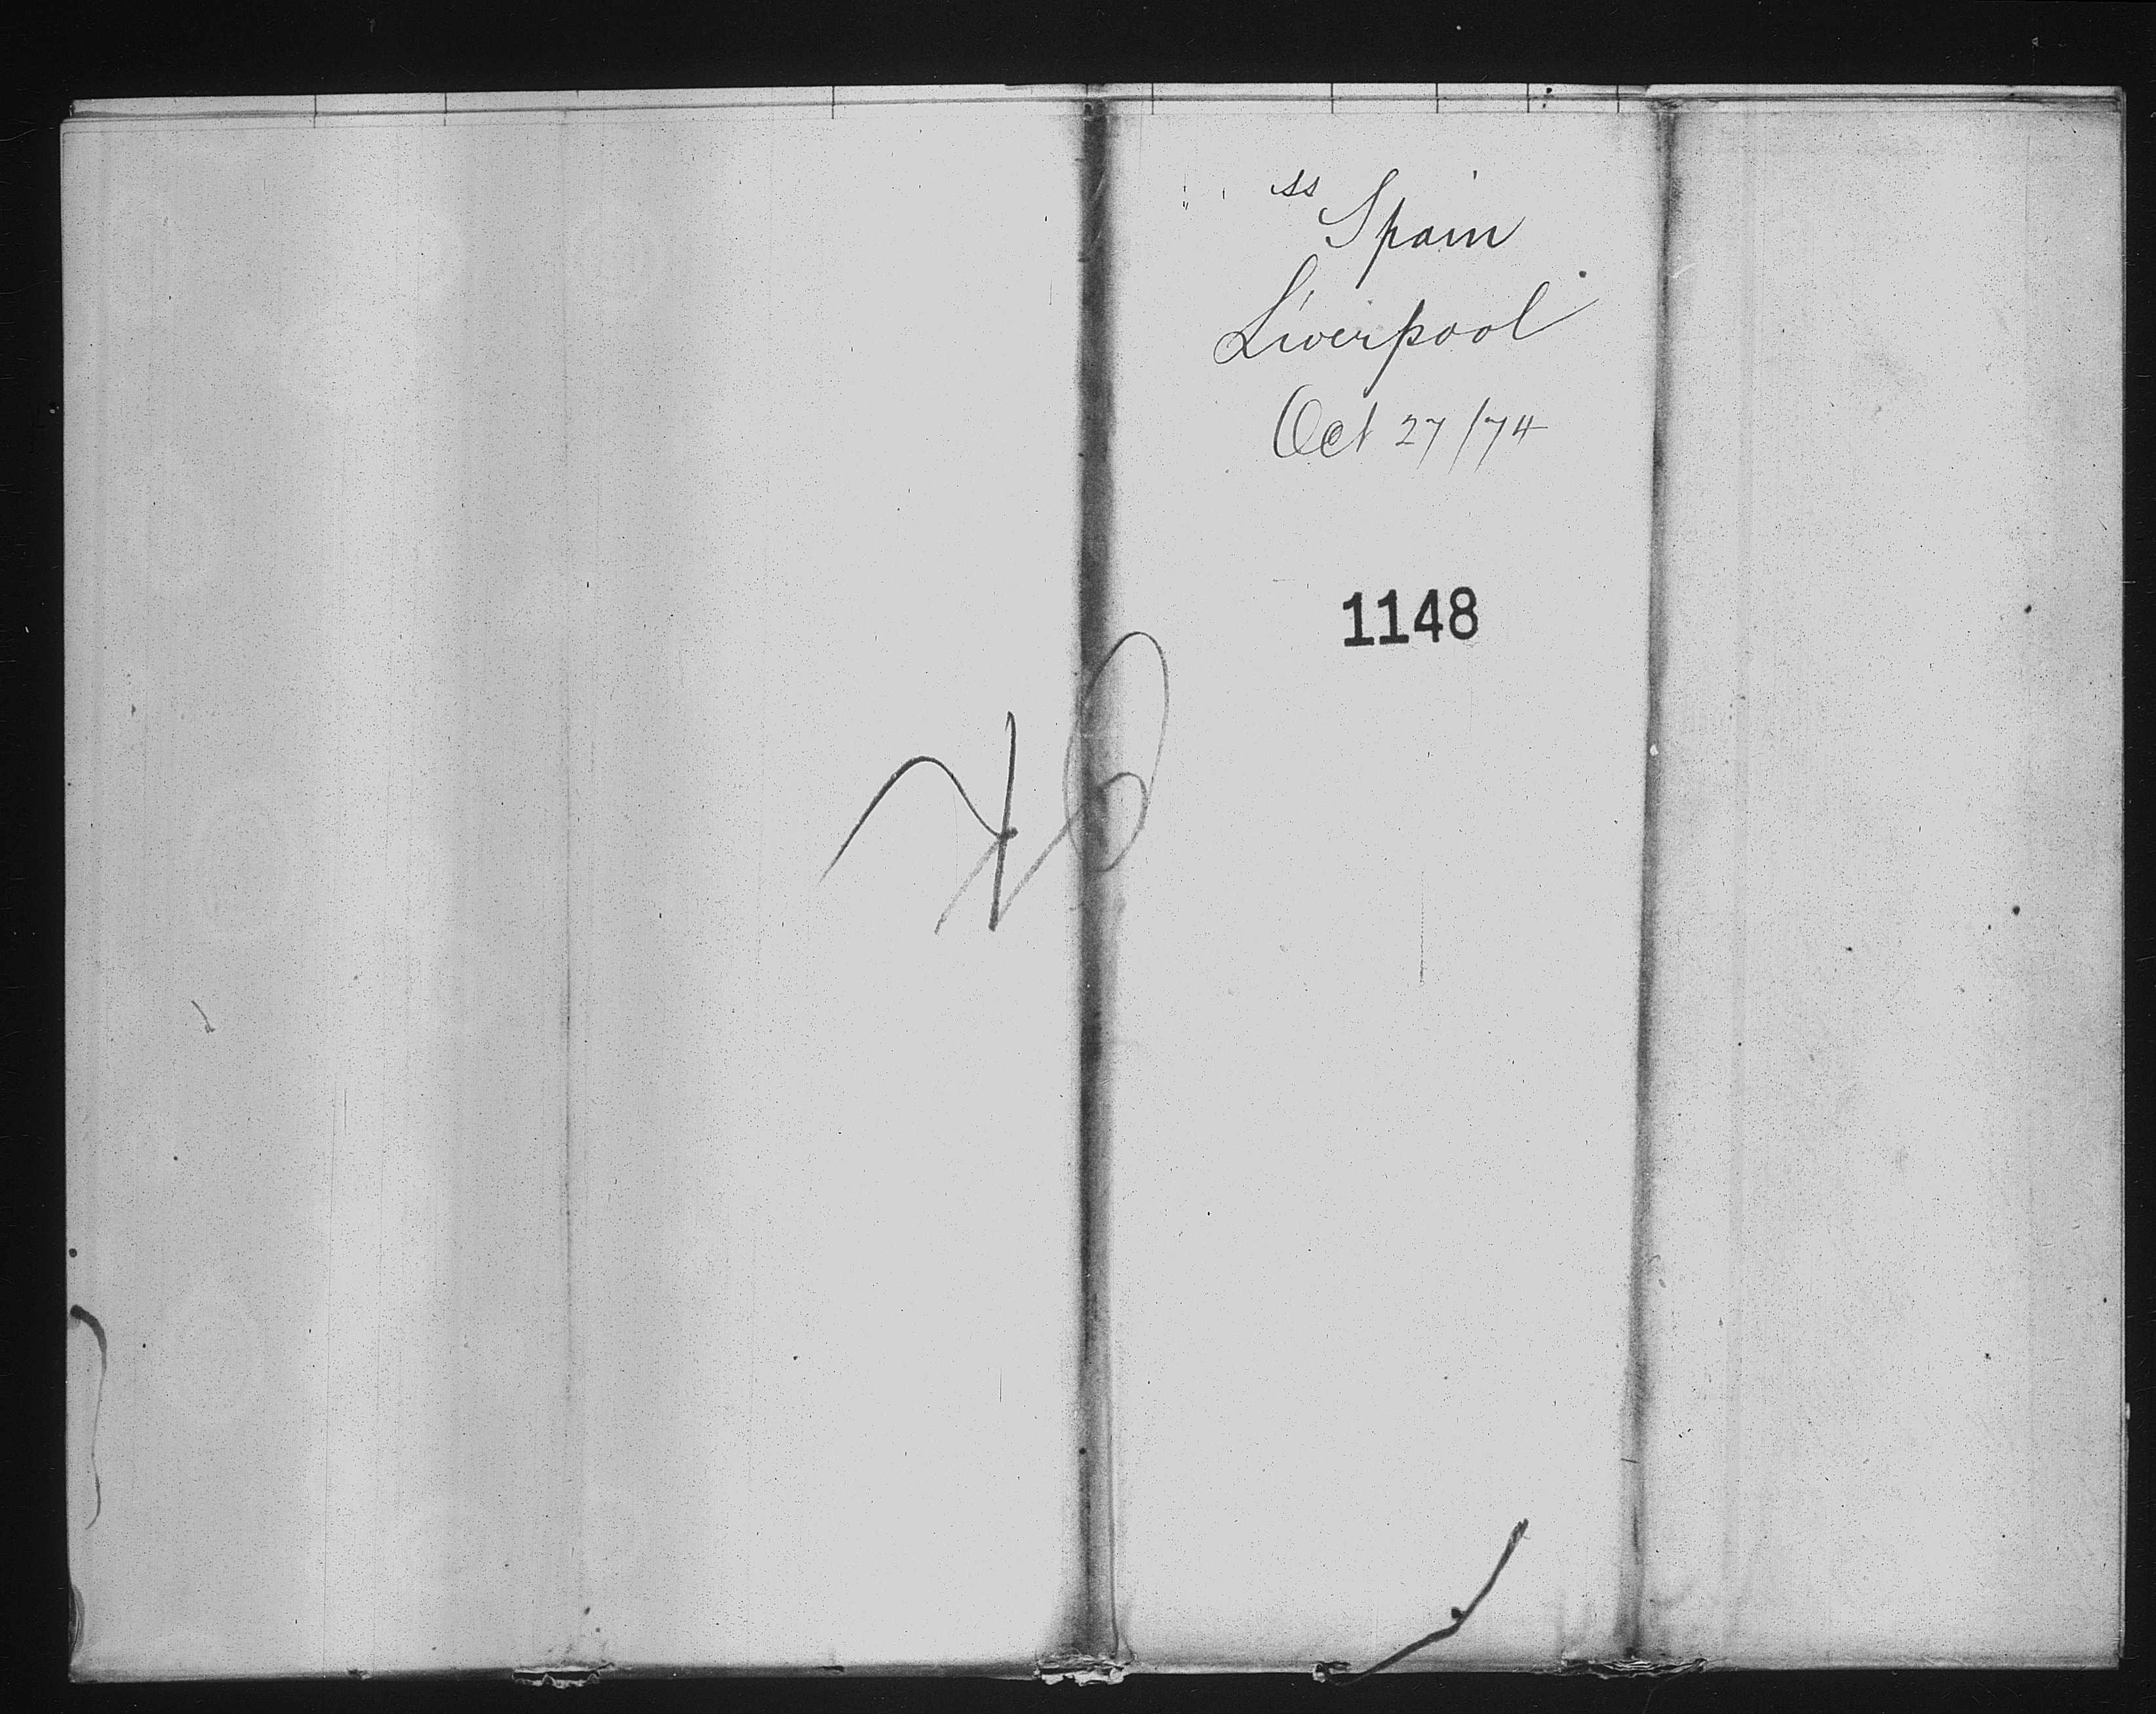 ss
Spain
Liverpool
Oct 27/74
1148